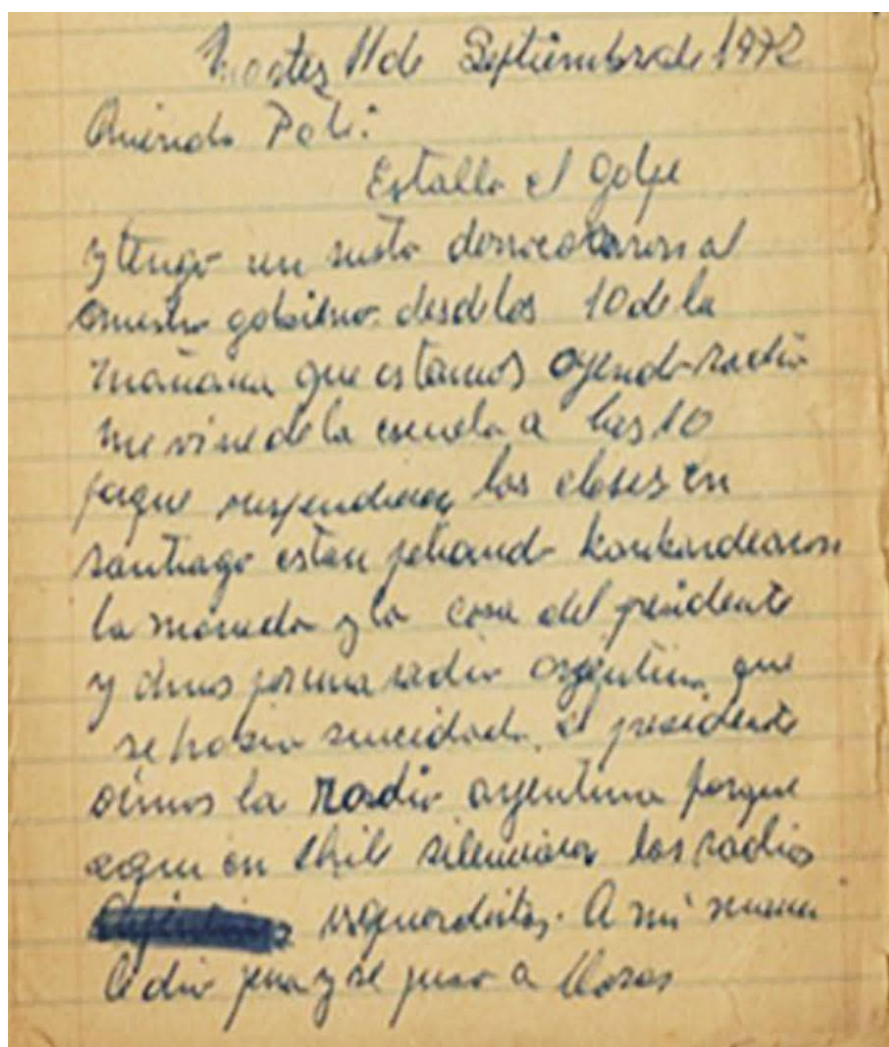 Martes 11 de Septiembre de 1972
Querido Pali:
Estallo el golpe
y tengo un susto derrocaron al
nuestro gobierno. desde las 10 de la
mañana que estamos oyendo radio
me vine de la escuela a las 10
porque suspendieron las clases en
santiago estan peliando bonbardearon
la moneda y la casa del presidente
y oimos por una radio argentina que
se habia suicidado el presidente
oimos la Radio argentina porque
aqui en chile silenciaron las radios
isquierdistas. A mi mama
le dio pena y se puso a llorar